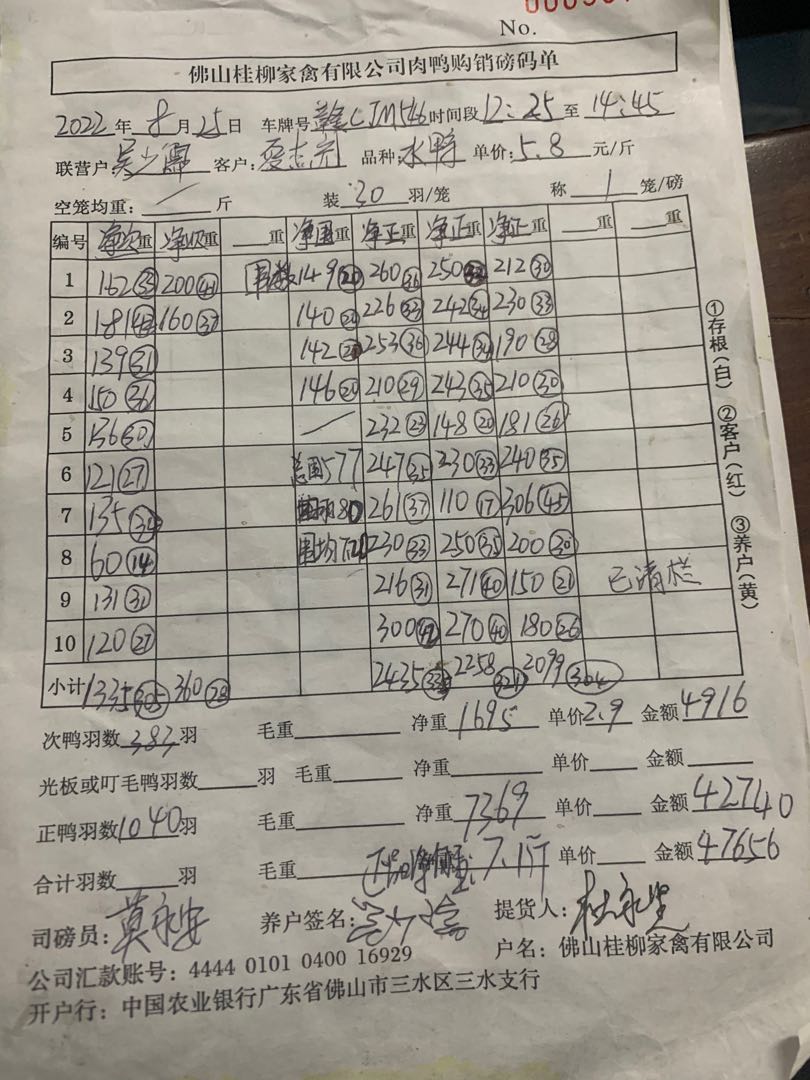 No.
佛山桂柳家禽有限公司肉鸭购销磅码单
2022年8月25日 车牌号 CJM546 时间段12:25至14:45
联营户: 吴少 客户: 品种: 水鸭 单价: 5.8 元/斤
空笼均重: / 斤 装 30 羽/笼 称 1 笼/磅
编号 净次重 净次重 重 净国重 净正重 净正重 净正重 重 重
1 162 200 149 260(36) 250 212(30)
2 181(43) 160 140 226(33) 242(34) 230(33)
3 139(31) 142 253(36) 244 190(28)
4 150(36) 146 210(29) 243(35) 210(30)
5 136(30) / 232(23) 148(20) 181(26)
6 121(27) 577 247(35) 230(33) 240(35)
7 135 261(37) 110(17) 306(45)
8 60(14) 230(33) 250(35) 200(30)
9 131(32) 216(31) 271(40) 150(21) 已清栏
10 120(27) 300 270(40) 180(26)
小计 1335(305) 360 2435 2258 2099(304)
次鸭羽数383羽 毛重 净重1695 单价2.9 金额4916
光板或叮毛鸭羽数 羽 毛重 净重 单价 金额
正鸭羽数1040羽 毛重 净重7369 单价 金额42740
合计羽数 羽 毛重 7.1斤 单价 金额47656
司磅员: 莫永安 养户签名: 提货人: 杜永
公司汇款账号: 4444 0101 0400 16929 户名: 佛山桂柳家禽有限公司
开户行: 中国农业银行广东省佛山市三水区三水支行
①存根(白) ②客户(红) ③养户(黄)